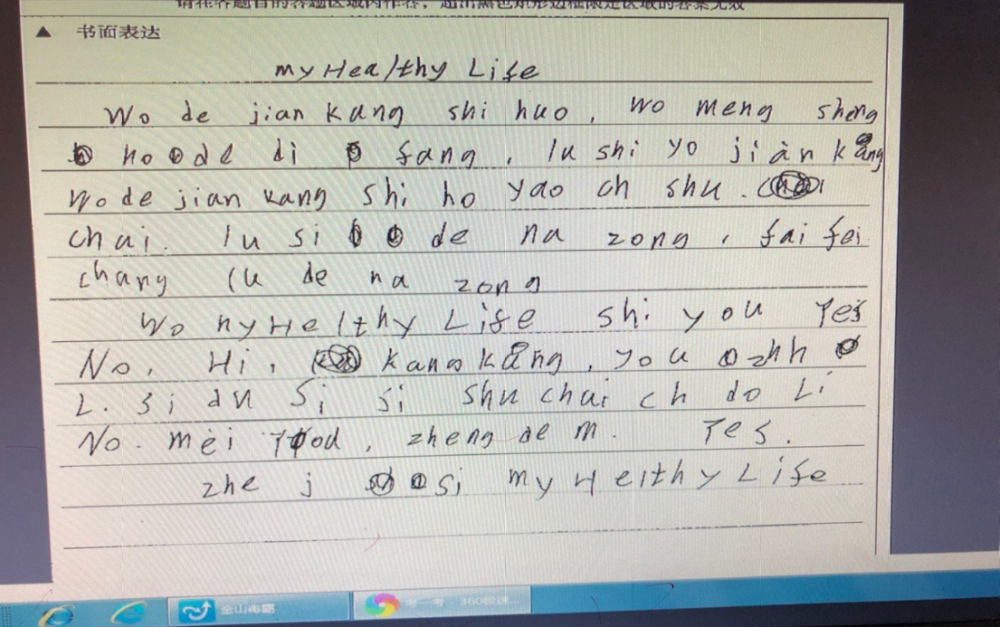 请在各题目的答题区域内作答，超出黑色矩形边框限定区域的答案无效
▲ 书面表达
my Healthy Life
Wo de jian kang shi huo, wo meng sheng
ho de di fang, lu shi yo jian kang
Wo de jian kang shi ho yao ch shu.
chai. lu si de na zong, fai fei
chang lu de na zong
Wo ny Healthy Life shi you Yes
No, Hi, kang kang, you zhh
L. si an si si shu chai ch do Li
No. mei you, zheng de m. Yes.
zhe j si my Heithy Life
金山毒霸
考一考 - 360极速...